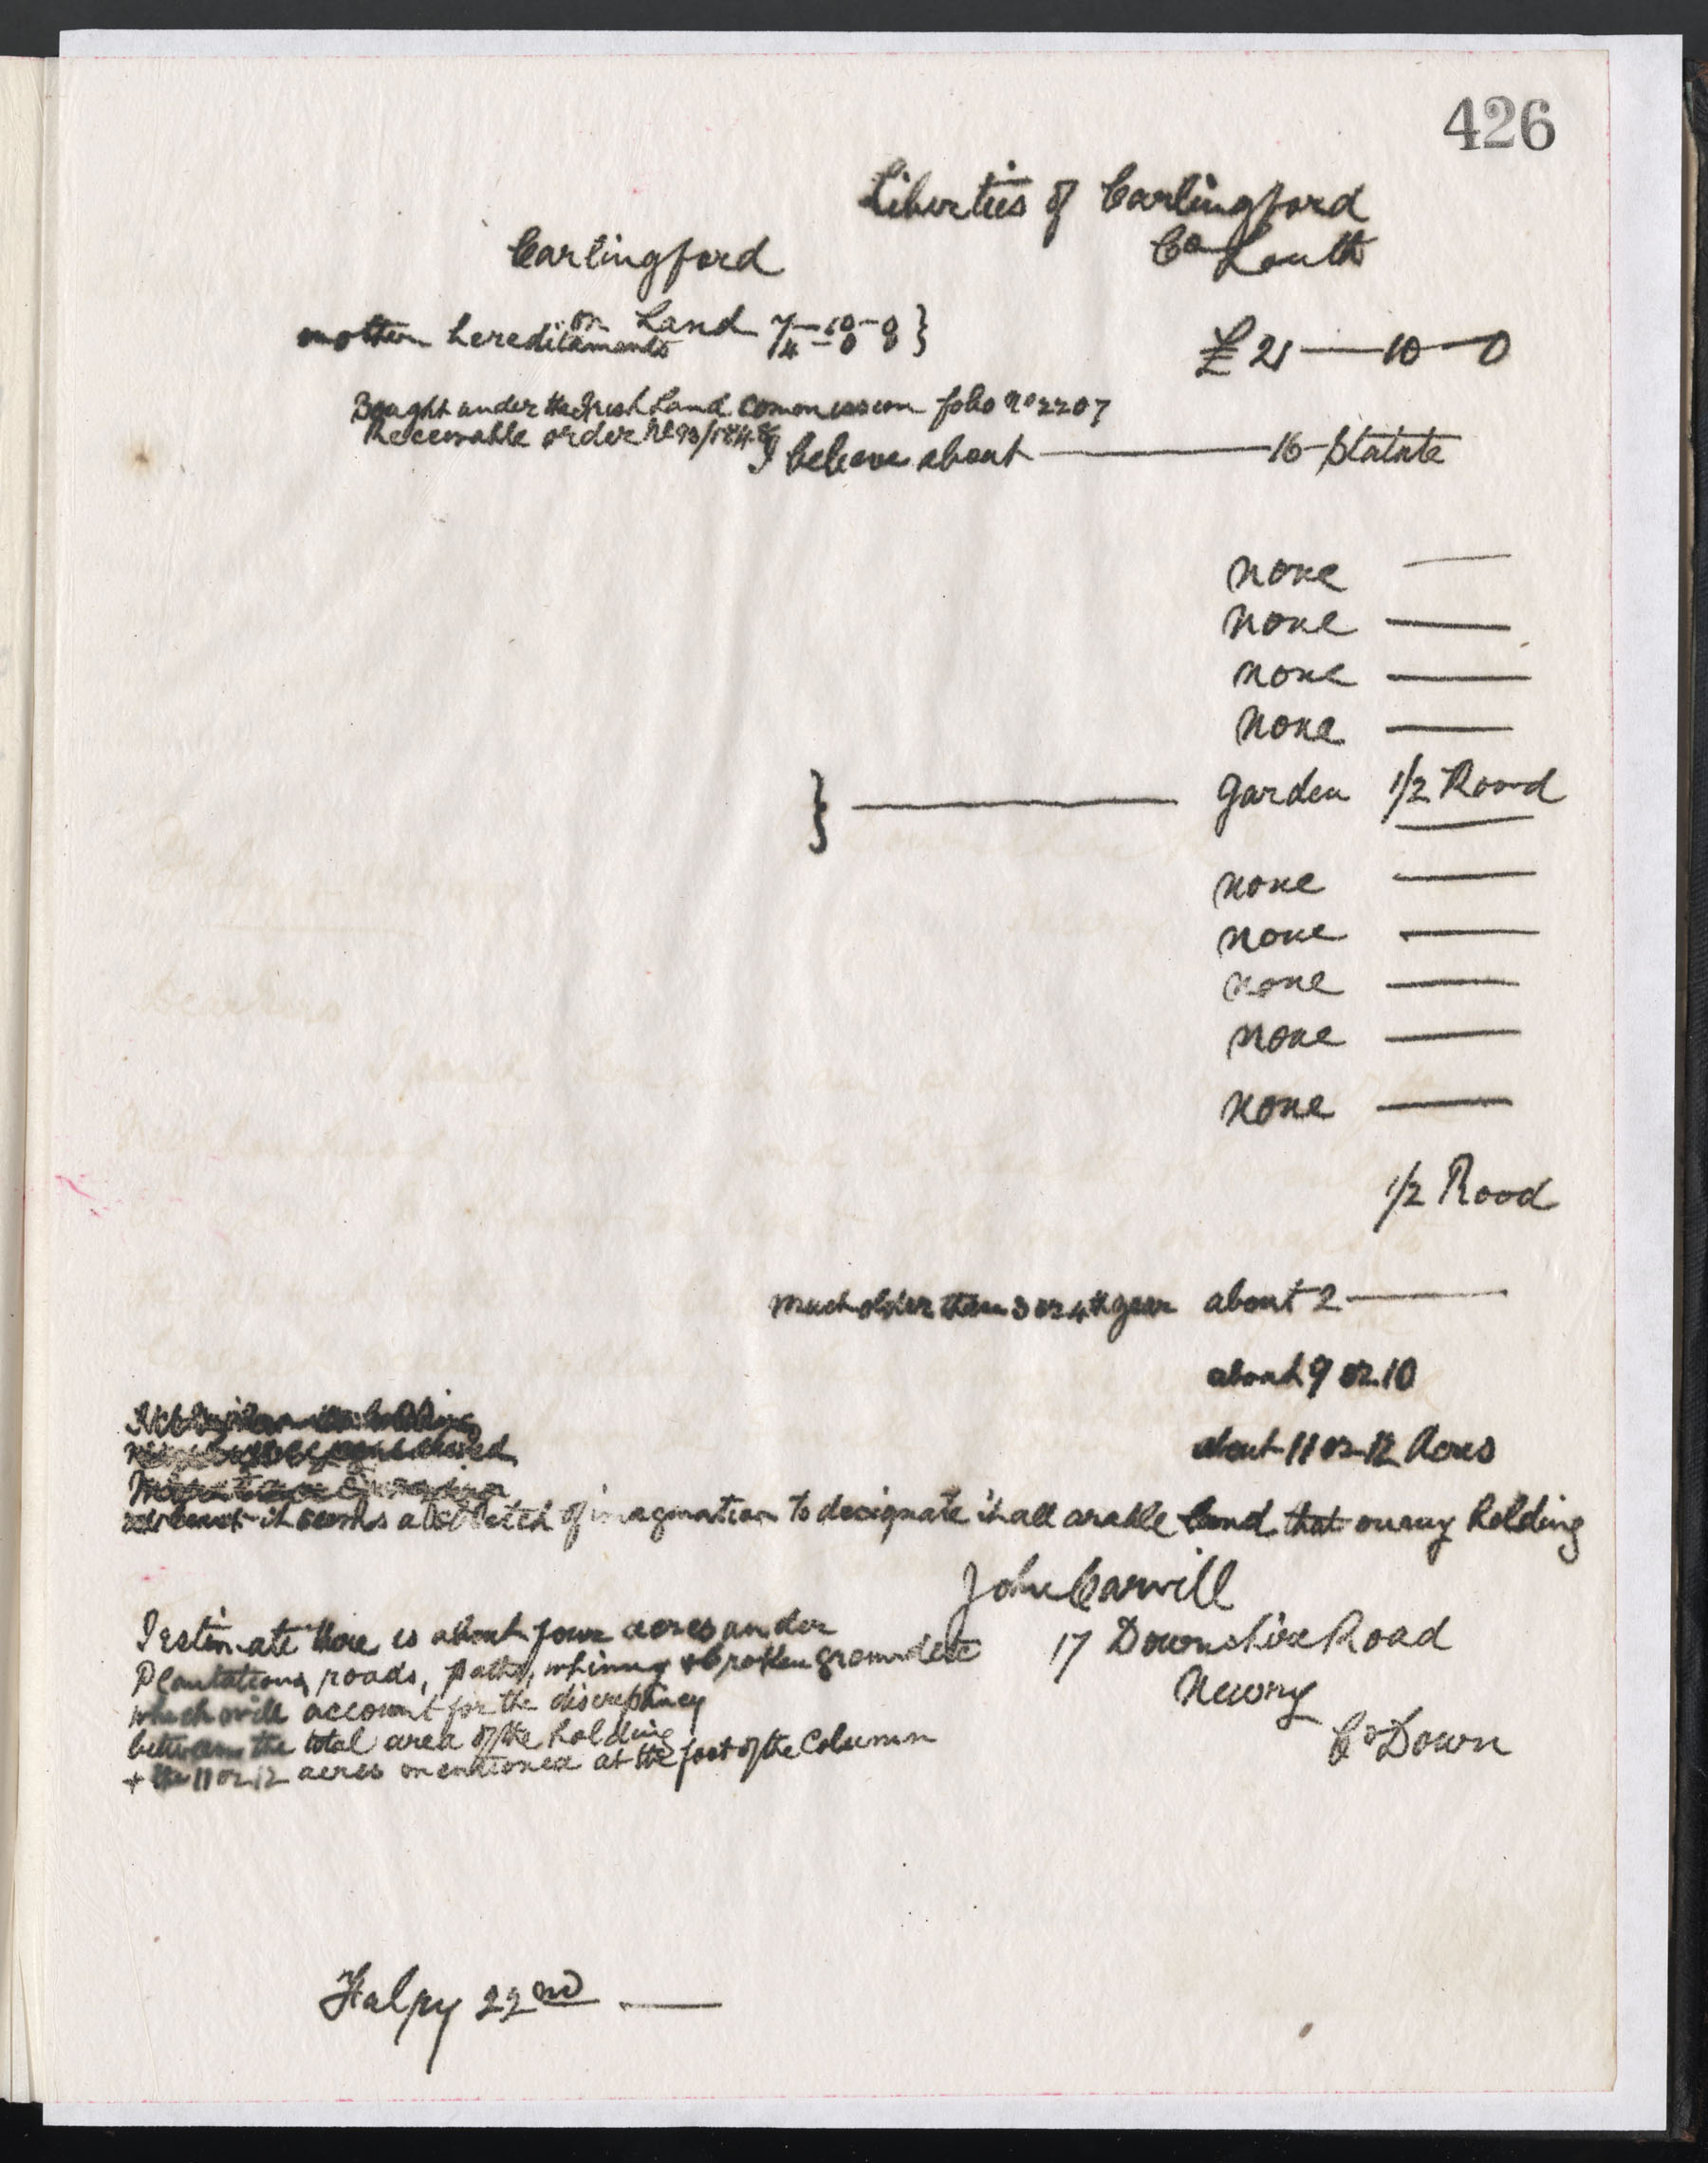 426
Liberties of Carlingford
Carlingford Co Louth
on Land 7-10-0 }
on other hereditaments 14-0-0 £21-10-0
Bought under the Irish Land Commission folio No 2207
Receivable order No
I believe about 16 Statute
none
none
none
none
} garden 1/2 Rood
none
none
none
none
none
1/2 Rood
Much older than 3 or 4th year about 2
about 9 or 10
about 11 or 12 Acres
it seems a stretch of imagination to designate it all arable land that on my holding
John Carvill
I estimate there is about four acres under
17 Downshire Road
Plantations, roads, paths, whinny & broken ground etc
Newry
which will account for the discrepancy
Co Down
between the total area of the holding
+ the 11 or 12 acres mentioned at the foot of the Column
22nd